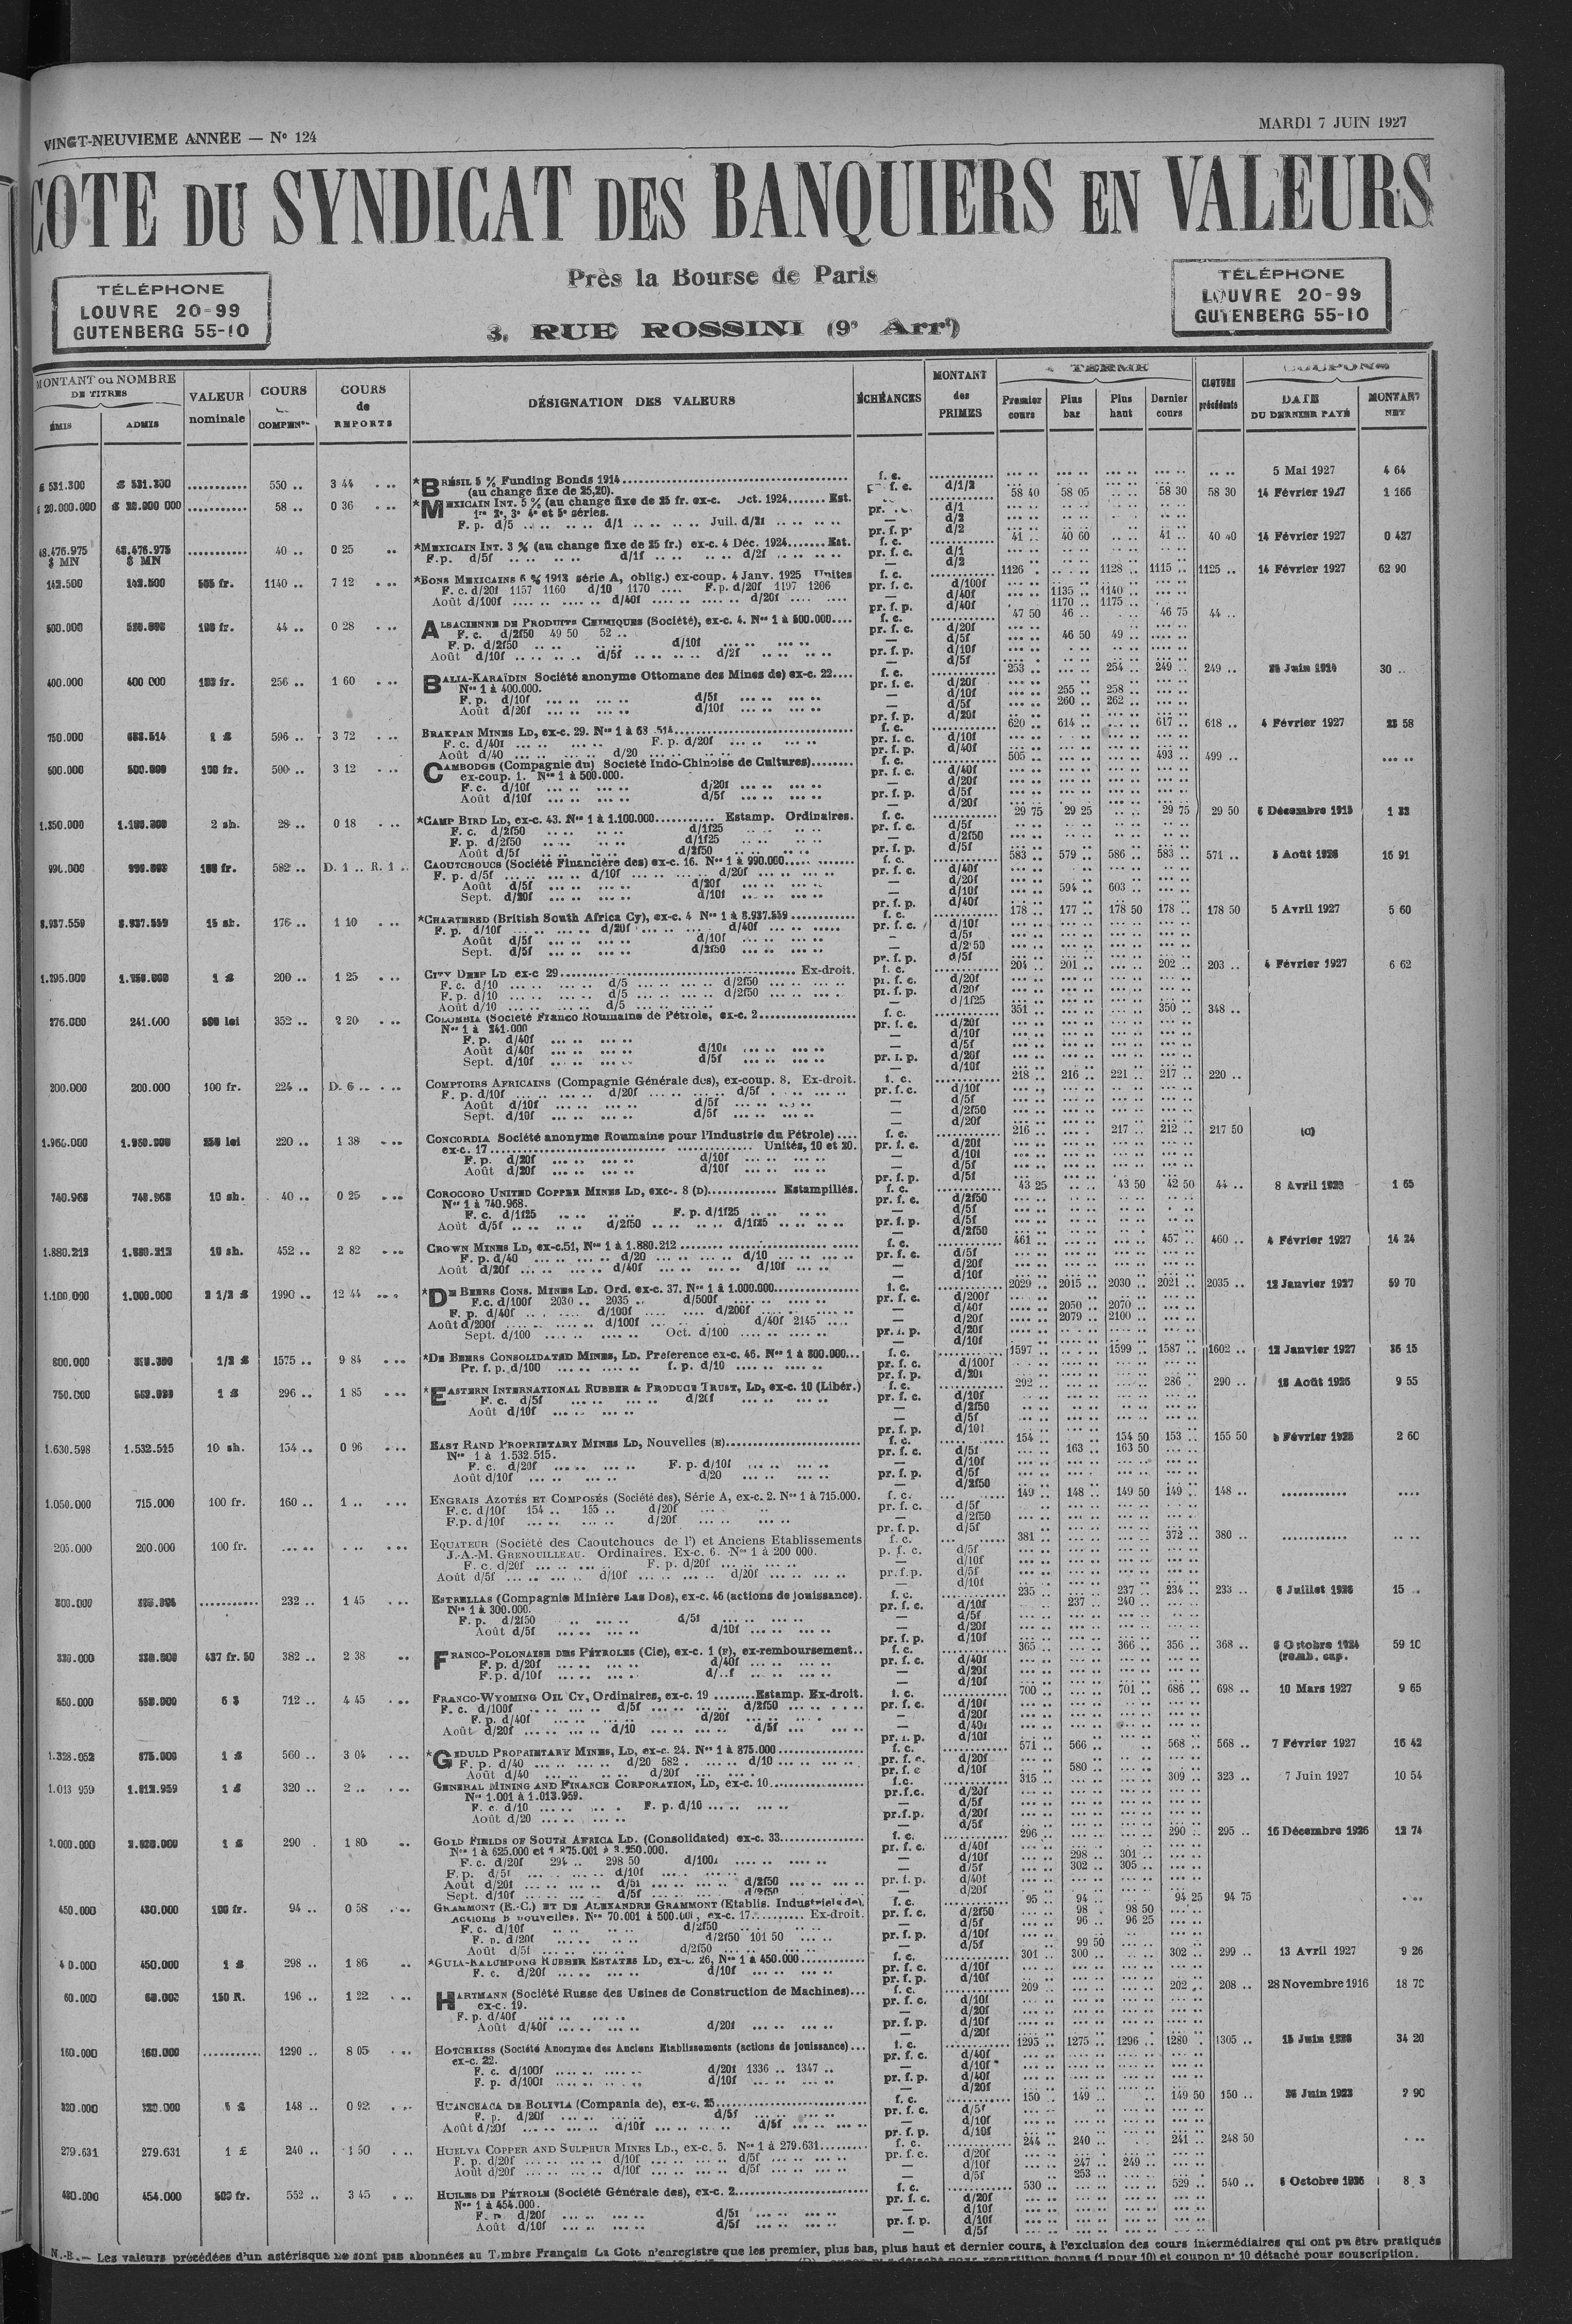 VINGT-NEUVIEME ANNÉE — N° 124
MARDI 7 JUIN 1927
COTE DU SYNDICAT DES BANQUIERS EN VALEURS
Près la Bourse de Paris
3, RUE ROSSINI (9e Arrt)
TÉLÉPHONE
LOUVRE 20-99
GUTENBERG 55-10
TÉLÉPHONE
LOUVRE 20-99
GUTENBERG 55-10
MONTANT ou NOMBRE DE TITRES
ÉMIS ADMIS
VALEUR nominale
COURS COMPEN
COURS de REPORTS
DÉSIGNATION DES VALEURS
ÉCHÉANCES
MONTANT des PRIMES
TERME
Premier cours Plus bas Plus haut Dernier cours
CLOTURE précédente
COUPONS
DATE DU DERNIER PAYÉ MONTANT NET
£ 531.300 £ 531.300 ........... 550 .. 3 44 *BRÉSIL 5 % Funding Bonds 1914 f. c. 5 Mai 1927 4 64
(au change fixe de 25,20).
£ 20.000.000 £ 20.000 000 ........... 58 .. 0 36 *MEXICAIN INT. 5 % (au change fixe de 25 fr. ex-c. Oct. 1924 Est. f. c. 58 40 58 05 58 30 58 30 14 Février 1927 1 166
1re 2e, 3e 4e et 5e séries.
F. p. d/5 d/1 Juil. d/21
48.476.975 $ MN 48.476.975 $ MN ........... 40 .. 0 25 *MEXICAIN INT. 3 % (au change fixe de 25 fr.) ex-c. 4 Déc. 1924 Est. f. c. 41 .. 40 60 41 .. 40 40 14 Février 1927 0 427
F.p. d/5f d/1f d/2f
142.500 142.500 505 fr. 1140 .. 7 12 *BONS MEXICAINS 6 % 1913 série A, oblig.) ex-coup. 4 Janv. 1925 Unites f. c. 1126 . 1128 .. 1115 .. 1125 .. 14 Février 1927 62 90
F. c. d/20f 1157 1160 d/10 1170 F. p. d/20f 1197 1206 pr. f. c. d/100f
Août d/100f d/40f d/20f d/40f 1135 .. 1140 ..
pr. f. p. d/40f 1170 .. 1175 ..
500.000 100 fr. 44 .. 0 28 ALSACIENNE DE PRODUITS CHIMIQUES (Société), ex-c. 4. Nos 1 à 500.000 f. c. 47 50 46 .. 46 75 44 ..
F. c. d/2f50 49 50 52 .. pr. f. c. d/20f
F. p. d/2f50 d/10f — d/5f 46 50 49 ..
Août d/10f d/5f d/2f pr. f. p. d/10f
400.000 400 000 256 .. 1 60 BALIA-KARAÏDIN Société anonyme Ottomane des Mines de) ex-c. 22 f. c. 253 .. 254 .. 249 .. 249 .. Juin 1914 30 ..
Nos 1 à 400.000. pr. f. c. d/20f
F. p. d/10f d/5f — d/10f 255 .. 258 ..
Août d/20f d/10f — d/5f 260 .. 262 ..
750.000 683.514 1 £ 596 .. 3 72 BRAKPAN MINES LD, ex-c. 29. f. c. 620 .. 614 .. 617 .. 618 .. 4 Février 1927 23 58
F. c. d/40f F. p. d/20f pr. f. c. d/10f
Août d/40 d/20 pr. f. p. d/40f
500.000 500.000 100 fr. 500 .. 3 12 CAMBODGE (Compagnie du) Société Indo-Chinoise de Cultures) f. c. 505 .. 493 .. 499 ..
ex-coup. 1. Nos 1 à 500.000. pr. f. c. d/40f
F. c. d/10f d/20f — d/20f
Août d/10f d/5f pr. f. p. d/5f
1.350.000 2 sh. 28 .. 0 18 *CAMP BIRD LD, ex-c. 43. Nos 1 à 1.100.000 Estamp. Ordinaires. f. c. 29 75 29 25 29 75 29 50 Décembre 1915
F. c. d/2f50 d/1f25 pr. f. c. d/5f
F. p. d/2f50 d/1f25 — d/2f50
Août d/5f d/2f50 pr. f. p. d/5f
990.000 100 fr. 582 .. D. 1 .. R. 1 .. CAOUTCHOUCS (Société Financière des) ex-c. 16. Nos 1 à 990.000 f. c. 583 .. 579 .. 586 .. 583 .. 571 .. Août 1926 16 91
F. p. d/5f d/10f d/20f pr. f. c. d/40f
Août d/5f d/20f — d/20f
Sept. d/20f d/10f — d/10f 594 .. 603 ..
pr. f. p. d/40f
8.937.559 8.937.559 15 sh. 176 .. 1 10 *CHARTERED (British South Africa Cy), ex-c. 4 Nos 1 à 8.937.559 f. c. 178 .. 177 .. 178 50 178 .. 178 50 5 Avril 1927 5 60
F. p. d/10f d/20f d/40f pr. f. c. d/10f
Août d/5f d/10f — d/5f
Sept. d/5f d/2f50 — d/2f50
pr. f. p. d/5f
1.295.000 1 £ 200 .. 1 25 CITY DEEP LD ex-c 29 Ex-droit. f. c. 204 .. 201 .. 202 .. 203 .. 4 Février 1927 6 62
F. c. d/10 d/5 d/2f50 pr. f. c. d/20f
F. p. d/10 d/5 d/2f50 pr. f. p. d/20f
Août d/10 d/5 — d/1f25
276.000 241.000 500 lei 352 .. 2 20 COLOMBIA (Société Franco Roumaine de Pétrole, ex-c. 2 f. c. 351 .. 350 .. 348 ..
Nos 1 à 241.000 pr. f. c. d/20f
F. p. d/40f — d/10f
Août d/40f d/10f — d/5f
Sept. d/10f d/5f pr. f. p. d/20f
— d/10f
200.000 200.000 100 fr. 224 .. D. 6 .. COMPTOIRS AFRICAINS (Compagnie Générale des), ex-coup. 8. Ex-droit. f. c. 218 .. 216 .. 221 .. 217 .. 220 ..
F. p. d/10f d/20f d/5f pr. f. c. d/10f
Août d/10f d/5f — d/5f
Sept. d/10f d/5f — d/2f50
— d/20f
250 lei 220 .. 1 38 CONCORDIA Société anonyme Roumaine pour l'Industrie du Pétrole) f. c. 216 .. 217 .. 212 .. 217 50 (c)
ex-c. 17 Unités, 10 et 20. pr. f. c. d/20f
F. p. d/20f d/10f — d/10f
Août d/20f d/10f — d/5f
pr. f. p. d/5f
740.968 740.968 10 sh. 40 .. 0 25 COROCORO UNITED COPPER MINES LD, exc-. 8 (D) Estampillés. f. c. 43 25 43 50 42 50 44 .. 8 Avril 1 65
Nos 1 à 740.968. pr. f. c. d/2f50
F. c. d/1f25 F. p. d/1f25 — d/5f
Août d/5f d/2f50 d/1f25 pr. f. p. d/5f
— d/2f50
1.880.212 1.880.212 10 sh. 452 .. 2 82 CROWN MINES LD, ex-c.51, Nos 1 à 1.880.212 f. c. 461 .. 457 .. 460 .. 4 Février 1927 14 24
F. p. d/40 d/20 d/10 pr. f. c. d/5f
Août d/20f d/40f d/10f — d/20f
— d/10f
1.100.000 1.000.000 2 1/2 £ 1990 .. 12 44 *DE BEERS CONS. MINES LD. Ord. ex-c. 37. Nos 1 à 1.000.000 f. c. 2029 .. 2015 .. 2030 .. 2021 .. 2035 .. 12 Janvier 1927 59 70
F.c. d/100f 2030 .. 2035 .. d/500f pr. f. c. d/200f
F. p. d/40f d/100f d/200f — d/40f 2050 .. 2070 ..
Août d/200f d/100f d/40f 2145 — d/20f 2079 .. 2100 ..
Sept. d/100 Oct. d/100 pr. f. p. d/20f
— d/10f
800.000 1/2 £ 1575 .. 9 84 *DE BEERS CONSOLIDATED MINES, LD. Préference ex-c. 46. Nos 1 à 800.000 f. c. 1597 .. 1599 .. 1587 .. 1602 .. 12 Janvier 1927 36 15
Pr. f. p. d/100 f. p. d/10 pr. f. c. d/100f
pr. f. p. d/20f
750.000 1 £ 296 .. 1 85 *EASTERN INTERNATIONAL RUBBER & PRODUCE TRUST, LD, ex-c. 10 (Libér.) f. c. 292 .. 286 .. 290 .. 18 Août 1926 9 55
F. c. d/5f d/20f pr. f. c. d/10f
Août d/10f — d/2f50
— d/5f
pr. f. p. d/10f
1.630.598 1.532.515 10 sh. 154 .. 0 96 EAST RAND PROPRIETARY MINES LD, Nouvelles (E) f. c. 154 .. 154 50 153 .. 155 50 Février 1925 2 60
Nos 1 à 1.532.515. pr. f. c. d/5f 163 .. 163 50
F. c. d/20f F. p. d/10f — d/10f
Août d/10f d/20 pr. f. p. d/5f
— d/2f50
1.050.000 715.000 100 fr. 160 .. 1 .. ENGRAIS AZOTÉS ET COMPOSÉS (Société des), Série A, ex-c. 2. Nos 1 à 715.000. f. c. 149 .. 148 .. 149 50 149 .. 148 ..
F. c. d/10f 154 .. 155 .. d/20f pr. f. c. d/5f
F.p. d/10f d/20f — d/2f50
pr. f. p. d/5f
205.000 200.000 100 fr. EQUATEUR (Société des Caoutchoucs de l') et Anciens Etablissements f. c. 381 .. 372 .. 380 ..
J.-A.-M. GRENOUILLEAU. Ordinaires. Ex-c. 6. Nos 1 à 200 000. p. f. c. d/5f
F. c. d/20f F. p. d/20f — d/10f
Août d/5f d/10f d/20f pr. f. p. d/5f
— d/10f
300.000 232 .. 1 45 ESTRELLAS (Compagnie Minière Las Dos), ex-c. 46 (actions de jouissance). f. c. 235 .. 237 .. 234 .. 233 .. 6 Juillet 1926 15 ..
Nos 1 à 300.000. pr. f. c. d/10f 237 .. 240 ..
F. p. d/2f50 d/5f — d/5f
Août d/5f d/10f — d/20f
pr. f. p. d/10f
437 fr. 50 382 .. 2 38 FRANCO-POLONAISE DES PÉTROLES (Cie), ex-c. 1 (F), ex-remboursement f. c. 365 .. 366 .. 356 .. 368 .. Octobre 1924 59 10
F. p. d/20f d/40f pr. f. c. d/40f (remb. cap.
F. p. d/10f — d/20f
— d/10f
550.000 6 $ 712 .. 4 45 FRANCO-WYOMING OIL CY, Ordinaires, ex-c. 19 Estamp. Ex-droit. f. c. 700 .. 701 .. 686 .. 698 .. 10 Mars 1927 9 65
F. c. d/100f d/5f d/2f50 pr. f. c. d/10f
F. p. d/40f d/20f — d/20f
Août d/20f d/10 d/5f — d/40f
pr. f. p. d/10f
1.328.052 875.000 1 £ 560 .. 3 04 *GEDULD PROPRIETARY MINES, LD, ex-c. 24. Nos 1 à 875.000 f. c. 571 .. 566 .. 568 .. 568 .. 7 Février 1927 16 42
F. p. d/40 d/20 582 . d/10 pr. f. c. d/20f
Août d/40 d/20f pr. f. c d/10f 580 ..
1.013 959 1.013.959 1 £ 320 .. 2 .. GENERAL MINING AND FINANCE CORPORATION, LD, ex-c. 10 f.c. 315 .. 309 .. 323 .. 7 Juin 1927 10 54
Nos 1.001 à 1.013.959. pr.f.c. d/20f
F. c. d/10 F. p. d/10 — d/5f
Août d/20 pr.f.p. d/20f
— d/5f
1 £ 290 . 1 80 GOLD FIELDS OF SOUTH AFRICA LD. (Consolidated) ex-c. 33 f. c. 296 .. 290 .. 295 .. 16 Décembre 1926 12 74
Nos 1 à 625.000 et 1.875.001 à 3.250.000. pr. f. c. d/40f
F. c. d/20f 294 .. 298 50 d/100f — d/10f 298 .. 301 ..
F. p. d/5f d/10f — d/5f 302 .. 305 ..
Août d/20f d/5f d/2f50 pr. f. p. d/40f
Sept. d/10f d/5f d/2f50 — d/20f
450.000 430.000 100 fr. 94 .. 0 58 GRAMMONT (E.-C.) ET DE ALEXANDRE GRAMMONT (Etablis. Industriels de). f. c. 95 .. 94 .. 94 25 94 75
Actions B nouvelles. Nos 70.001 à 500.001, ex-c. 17 Ex-droit. pr. f. c. d/2f50 98 .. 98 50
F. c. d/10f d/2f50 — d/5f 96 .. 96 25
F. p. d/20f d/2f50 101 50 pr. f. p. d/10f
Août d/5f d/2f50 — d/5f 99 50
450.000 1 £ 298 .. 1 86 *GULA-KALUMPONG RUBBER ESTATES LD, ex-c. 26, Nos 1 à 450.000 f. c. 301 .. 300 .. 302 .. 299 .. 13 Avril 1927 9 26
F. c. d/20f d/10f pr. f. c. d/10f
pr. f. p. d/10f
60.000 60.000 150 R. 196 .. 1 22 HARTMANN (Société Russe des Usines de Construction de Machines) f. c. 209 .. 202 .. 208 .. 28 Novembre 1916 18 70
ex-c. 19. pr. f. c. d/10f
F. p. d/40f — d/20f
Août d/40f d/20f pr. f. p. d/10f
— d/20f
160.000 160.000 ........... 1290 .. 8 05 HOTCHKISS (Société Anonyme des Anciens Etablissements (actions de jouissance) f. c. 1295 .. 1275 .. 1296 .. 1280 .. 1305 .. 15 Juin 34 20
ex-c. 22. pr. f. c. d/40f
F. c. d/100f d/20f 1336 .. 1347 .. — d/10f
F. p. d/100f d/10f pr. f. p. d/40f
— d/20f
320.000 320.000 148 .. 0 92 HUANCHACA DE BOLIVIA (Compania de), ex-c. 25 f. c. 150 .. 149 .. 149 50 150 .. 26 Juin 1923 2 90
F. p. d/20f d/5f pr. f. c. d/5f
Août d/20f d/10f d/5f — d/10f
pr. f. p. d/10f
279.631 279.631 1 £ 240 .. 1 50 HUELVA COPPER AND SULPHUR MINES LD., ex-c. 5. Nos 1 à 279.631 f. c. 244 .. 240 .. 241 .. 248 50
F. p. d/20f d/10f d/5f pr. f. c. d/20f
Août d/20f d/10f d/5f — d/10f 247 .. 249 ..
— d/5f 253 ..
454.000 500 fr. 552 .. 3 45 HUILES DE PÉTROLE (Société Générale des), ex-c. 2 f. c. 530 .. 529 .. 540 .. Octobre 1926
Nos 1 à 454.000. pr. f. c. d/20f
F. p. d/20f d/5f — d/10f
Août d/10f d/5f pr. f. p. d/10f
— d/5f
N.-B.— Les valeurs précédées d'un astérisque ne sont pas abonnées au Timbre Français La Cote n'enregistre que les premier, plus bas, plus haut et dernier cours, à l'exclusion des cours intermédiaires qui ont pu être pratiqués
repartition bonus (1 pour 10) et coupon n° 10 détaché pour souscription.